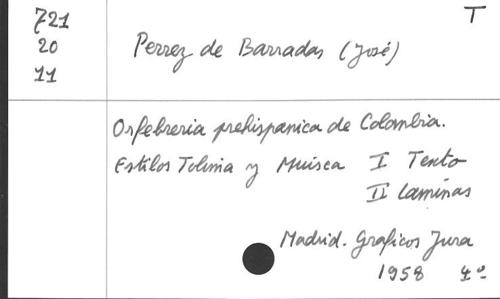 721
20
11
T
Perrez de Barradas (José)
Orfebreria prehispanica de Colombia.
Estilos Tolima y Muisca I Texto
II laminas
Madrid. Graficos Jura
1958 4º